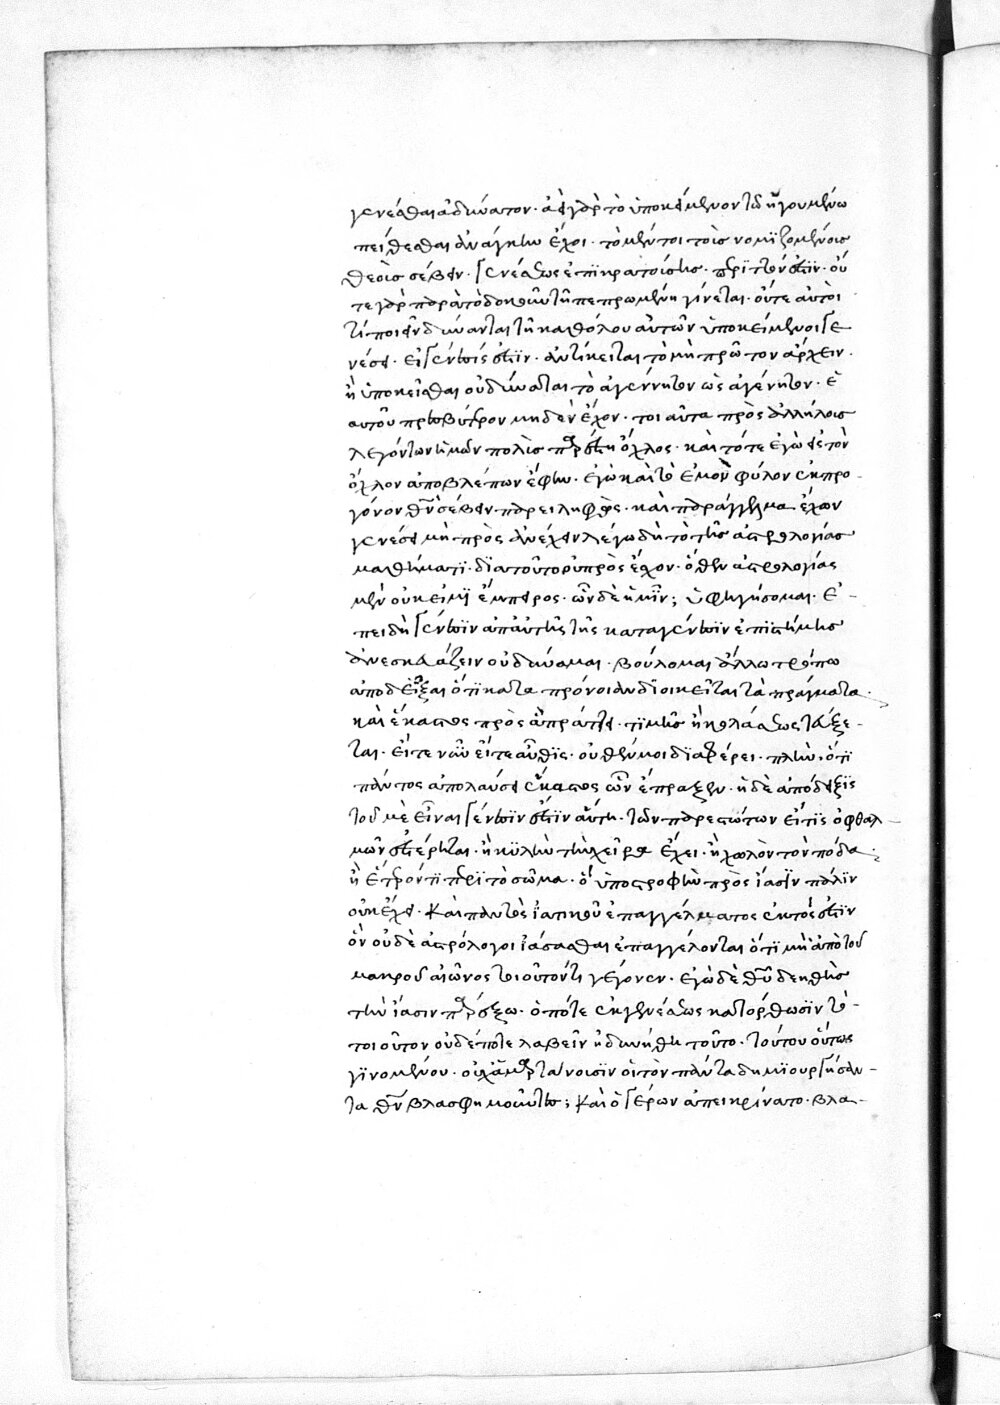 γενέσθαι ἀδύνατον· ἀεὶ γὰρ τὸ ὑποκείμενον τῷ ἡγουμένω
πείθεσθαι ἀνάγκην ἔχει· τὸ μέντοι τοῖς νομιζομένοις
θεοῖς σέβειν· γενέσεως ἐπικρατούσης· περιττόν ἐστϊν· οὔ
τε γὰρ παρὰ τὸ δοκοῦν τῆ πεπρωμένη γίνεται· οὔτε αὐτοί
τι ποιεῖν δύνανται τῆ καθόλου αὐτῶν ὑποκείμενοι γε
νέσει· εἰ γένεσίς ἐστϊν· ἀντίκειται τὸ μὴ πρῶτον ἄρχειν·
ἢ ὑποκεῖσθαι οὐ δύναται τὸ ἀγέννητον ὡς ἀγένητον· ἑ
αυτοῦ πρεσβύτερον μηδὲν ἔχον· τοιαῦτα πρὸς ἀλλήλοις
λεγόντων ἡμῶν πολὺς παρέστη ὄχλος· καὶ τότε ἐγὼ εἰς τὸν
ὄχλον ἀποβλέπων ἔφην· ἐγὼ καὶ τὸ ἐμὸν φύλον ἐκ προ-
γόνων θεὸν σέβειν παρειληφὼς· καὶ παράγγελμα ἔχων
γενέσει μὴ προσανέχειν λέγω δὴ τὸ τῆς ἀστρολογίας
μαθήματι· διατοῦτο οὐ προσέσχον· ὅθεν ἀστρολογίας
μὲν οὐκ εἰμὶ ἔμπειρος· ὧν δὲ ἡμῖν; ὑφηγήσομαι· ἐ-
πειδὴ γένεσϊν ἀπ' αὐτῆς τῆς κατὰ γένεσϊν ἐπιστήμης
ἀνεσκευάζειν οὐ δύναμαι· βούλομαι ἄλλω τρόπω
ἀποδεῖξαι ὅτι κατὰ πρόνοιαν διοικεῖται τὰ πράγματα·
καὶ ἕκαστος πρὸς ἃ πράττει· τιμῆς ἢ κολάσεως τεύξε-
ται· εἴτε νῦν εἴτε αὖθϊς· οὐθέν μοι διαφέρει· πλὴν ὅτι
πάντως ἀπολαύσει ἕκαστος ὧν ἔπραξεν· ἡ δὲ ἀπόδειξϊς
τοῦ μὲ εἶναι γένεσϊν ἐστϊν αὕτη· τῶν παρεστώτων εἴ τϊς ὀφθαλ-
μῶν ἐστέρηται· ἢ κυλὴν τὴν χεῖρα ἔχει· ἢ χωλὸν τὸν πόδα·
ἢ ἕτερόν τι περὶ τὸ σῶμα· ὃ ὑποστροφὴν πρὸς ἴασϊν πάλϊν
οὐκ ἔχει· καὶ παντὸς ἰατρικοῦ ἐπαγγέλματος ἐκτός ἐστϊν
ὃν οὐδὲ ἀστρόλογοι ἰάσασθαι ἐπαγγέλονται ὅτι μὴ ἀπὸ τοῦ
μακροῦ αἰῶνος τοιοῦτόν τι γέγονεν· ἐγὼ δὲ θεοῦ δεηθεὶς
τὴν ἴασιν παρέξω· ὁπότε ἐκ γενέσεως κατορθωσϊν τὸ-
τοιοῦτον οὐδέποτε λαβεῖν ἠδυνήθη τοῦτο· τούτου οὕτως
γϊνομένου· οὐχ ἁμαρτάνοισϊν οἱ τὸν πάντα δημιουργήσαν-
τα θεὸν βλασφημοῦντες; καὶ ὁ γέρων ἀπεκρίνατο· βλα-